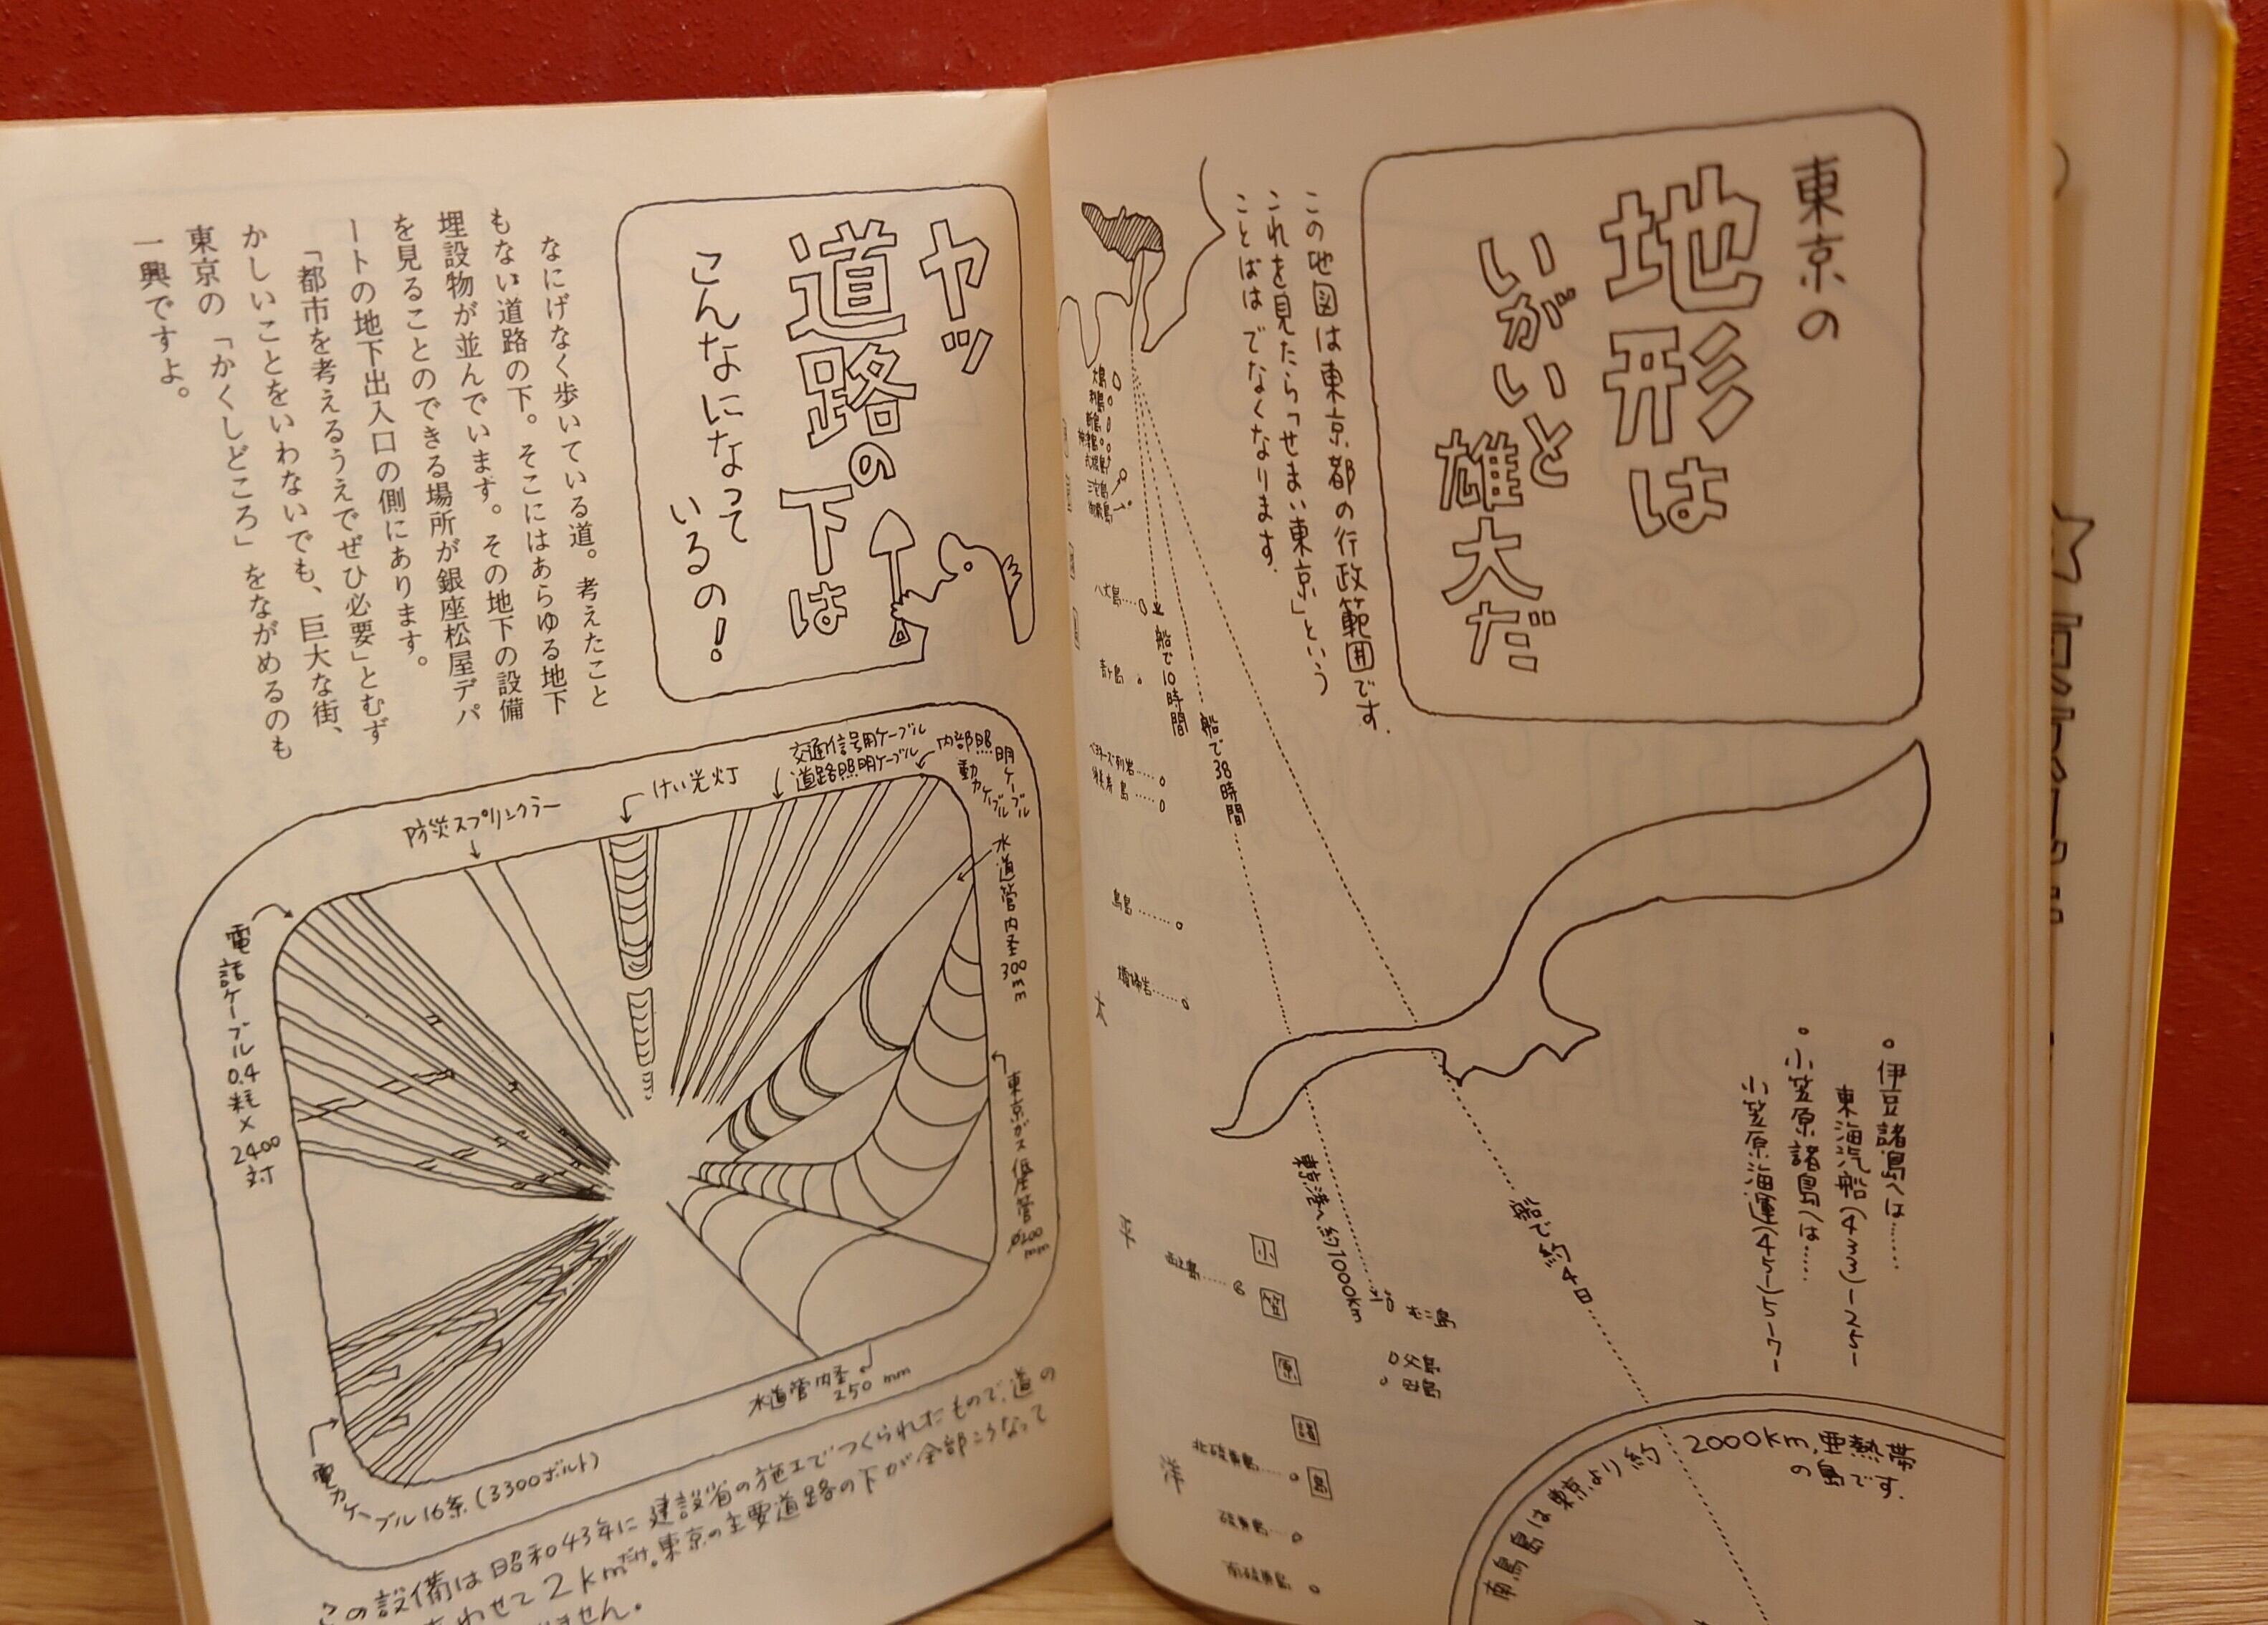 東京の
地形は
いがいと
雄大だ
この地図は東京都の行政範囲です.
これを見たら「せまい東京」という
ことばはでなくなります.
大島
利島
新島
神津島
式根島
三宅島
御蔵島
八丈島
青ヶ島
鳥島
孀婦岩
船で10時間
船で38時間
東京港へ約1000km
船で約4日
伊豆諸島へは……
東海汽船(433)-1251
小笠原諸島は……
小笠原海運(451)5171
太
平
洋
小
笠
原
諸
島
西之島
むこ島
父島
母島
北硫黄島
硫黄島
南硫黄島
南鳥島は東京より約2000km,亜熱帯
の島です.
ヤッ
道路の
下は
こんなになって
いるの!
なにげなく歩いている道。考えたこと
もない道路の下。そこにはあらゆる地下
埋設物が並んでいます。その地下の設備
を見ることのできる場所が銀座松屋デパ
ートの地下出入口の側にあります。
「都市を考えるうえでぜひ必要」とむず
かしいことをいわないでも、巨大な街、
東京の「かくしどころ」をながめるのも
一興ですよ。
内部照明ケーブル
動力ケーブル
交通信号用ケーブル
道路照明ケーブル
けい光灯
防災スプリンクラー
電話ケーブル0.4粍×2400対
水道管内圣300mm
東京ガス低圧管
ø200mm
水道管内圣
250mm
電力ケーブル16条(3300ボルト)
この設備は昭和43年に建設省の施工でつくられたもので、道の
あわせて2kmだけ。東京の主要道路の下が全部こうなって
ません。